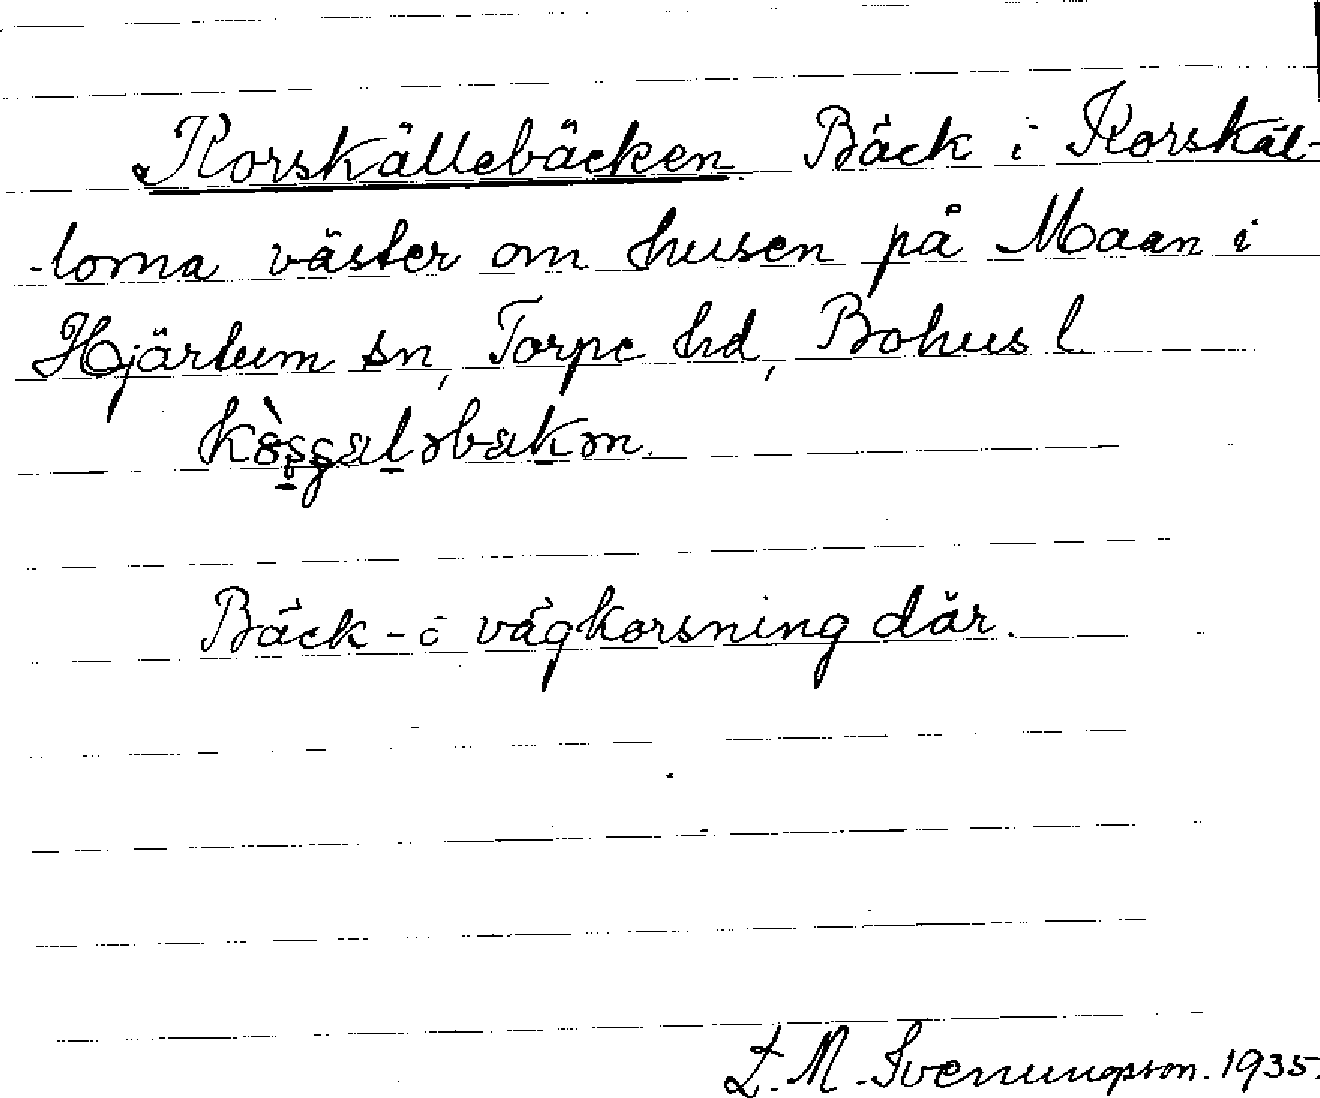 Korskällebäcken Bäck i Korskäl-
lorna väster om husen på Maan i
Hjärtum sn, Torpe hd, Bohus l
Bäck - i vägkorsning där.
L. M. Svenungsson. 1935.